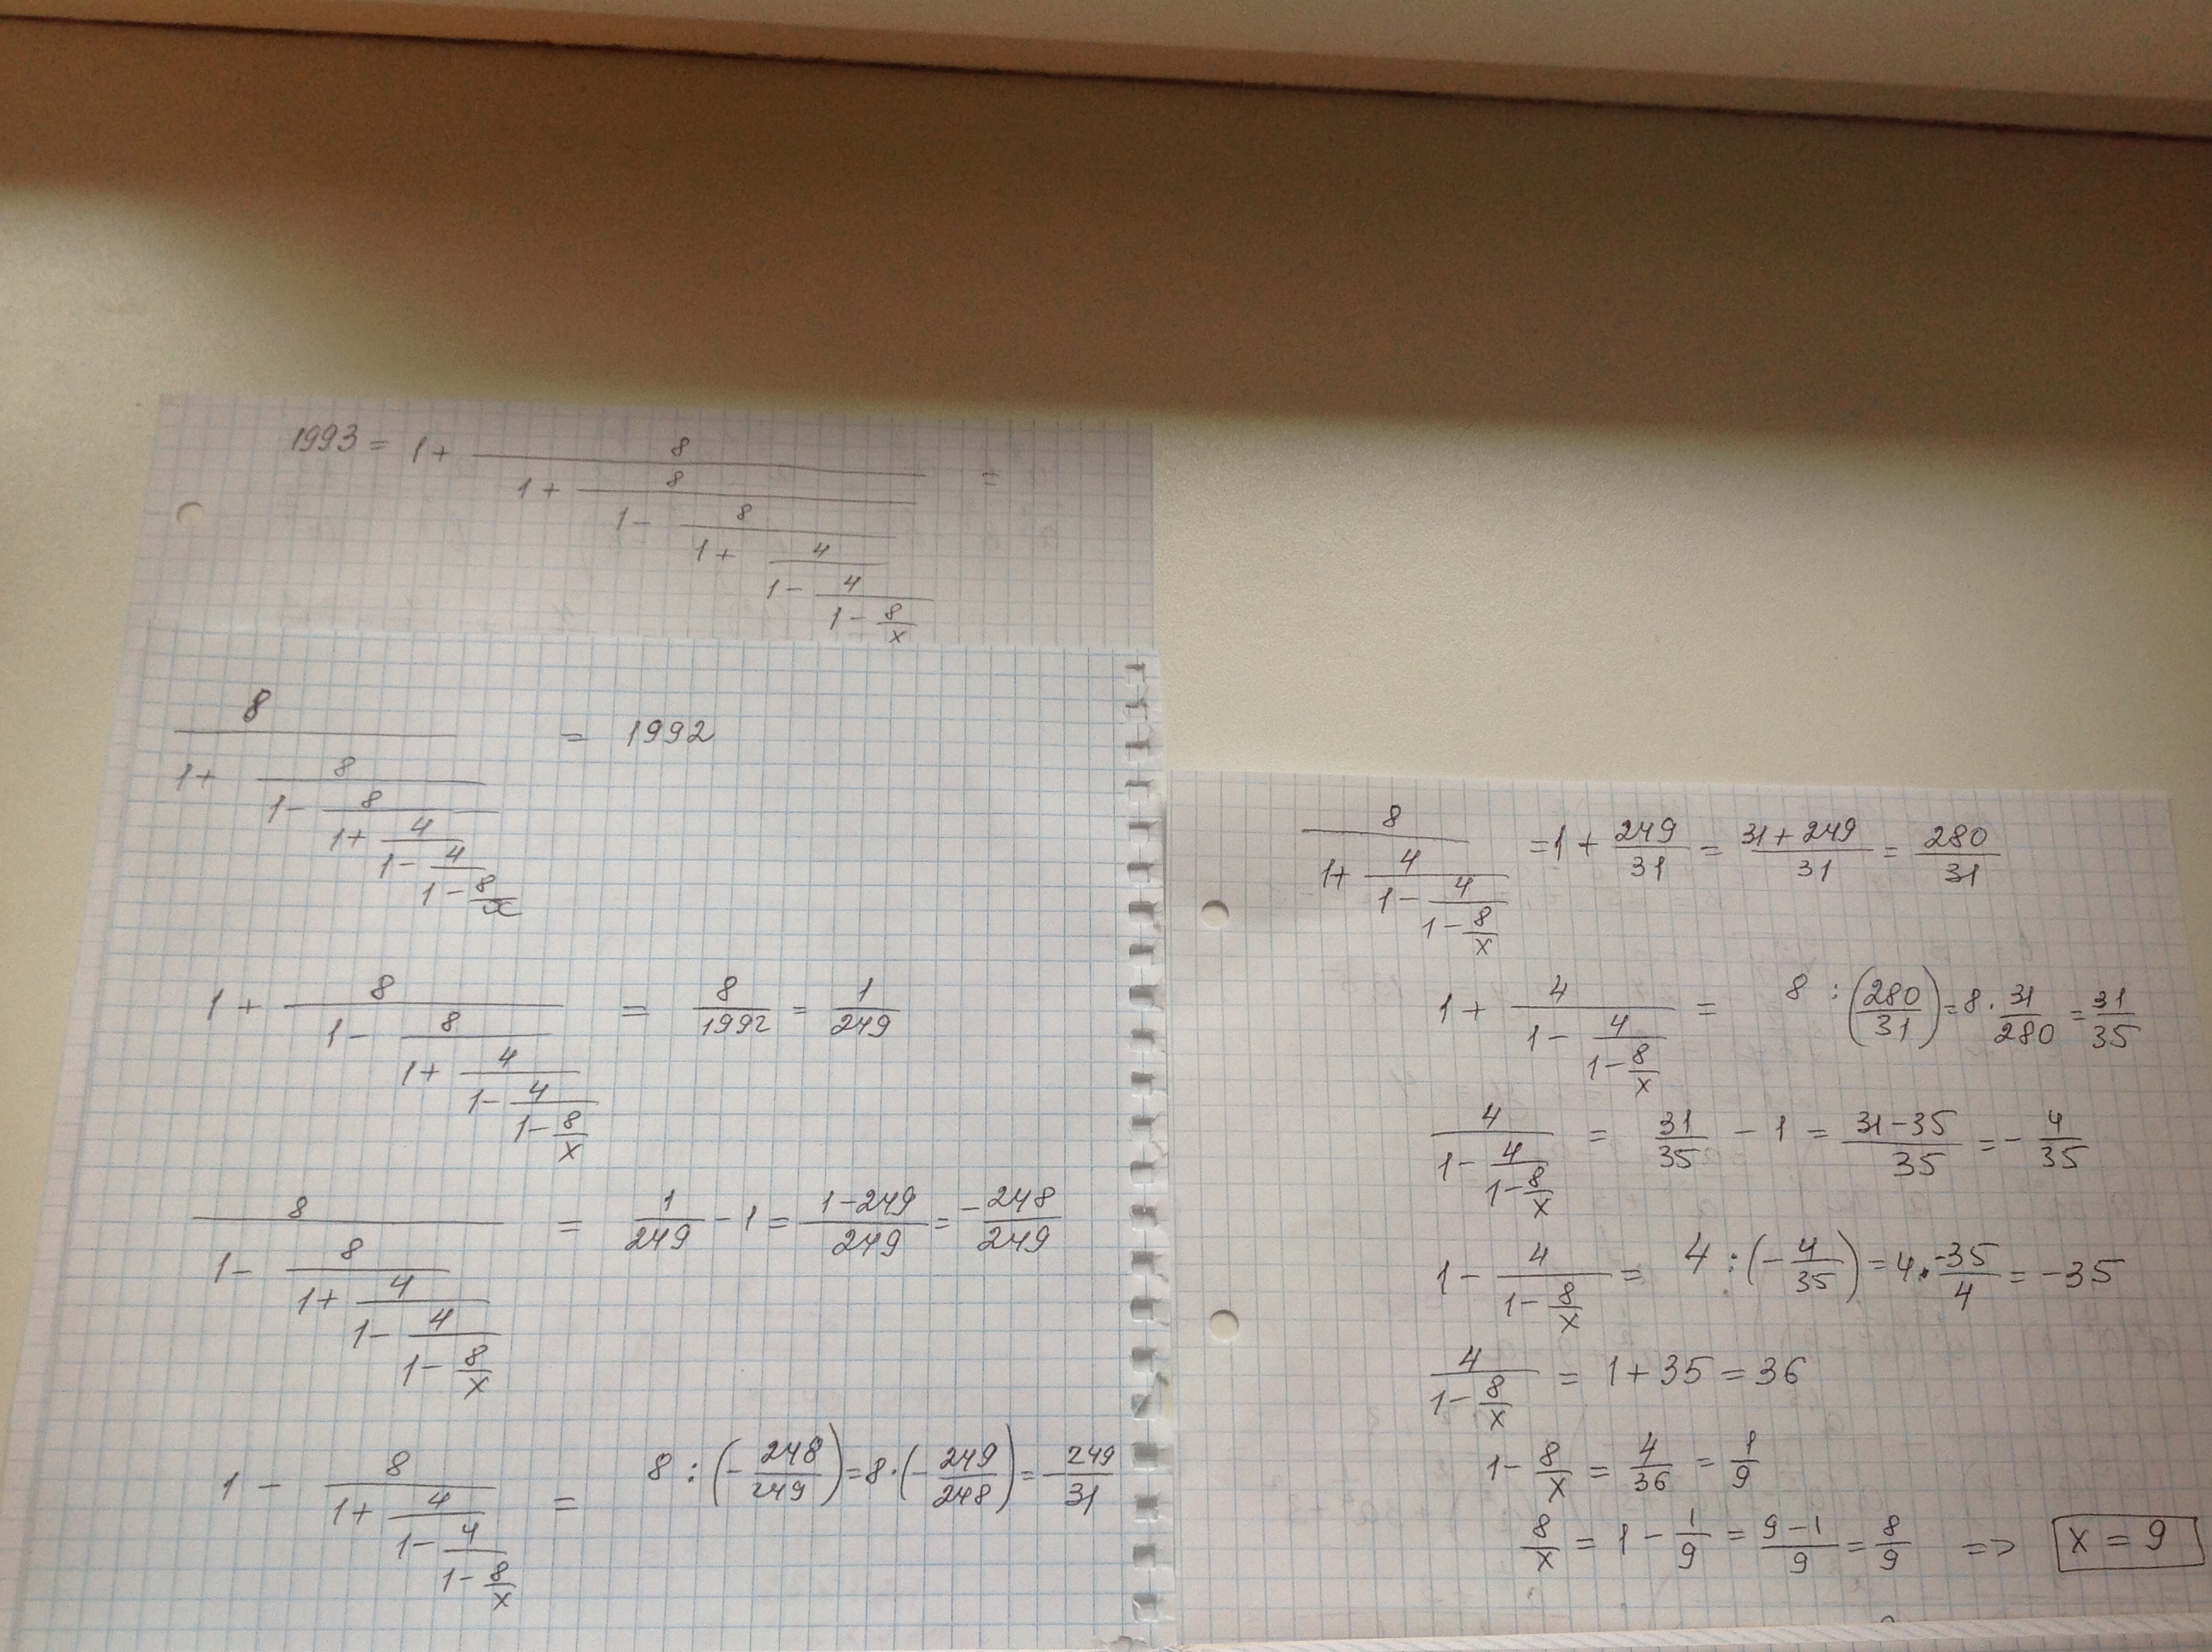 1993 = 1 + 8/(1 + 8/(1 - 8/(1 + 4/(1 - 4/(1 - 8/x))))) =
8/(1 + 8/(1 - 8/(1 + 4/(1 - 4/(1 - 8/x))))) = 1992
1 + 8/(1 - 8/(1 + 4/(1 - 4/(1 - 8/x)))) = 8/1992 = 1/249
8/(1 - 8/(1 + 4/(1 - 4/(1 - 8/x)))) = 1/249 - 1 = (1-249)/249 = -248/249
1 - 8/(1 + 4/(1 - 4/(1 - 8/x))) = 8 : (-248/249) = 8 · (-249/248) = -249/31
8/(1 + 4/(1 - 4/(1 - 8/x))) = 1 + 249/31 = (31+249)/31 = 280/31
1 + 4/(1 - 4/(1 - 8/x)) = 8 : (280/31) = 8 · 31/280 = 31/35
4/(1 - 4/(1 - 8/x)) = 31/35 - 1 = (31-35)/35 = -4/35
1 - 4/(1 - 8/x) = 4 : (-4/35) = 4 · -35/4 = -35
4/(1 - 8/x) = 1 + 35 = 36
1 - 8/x = 4/36 = 1/9
8/x = 1 - 1/9 = (9-1)/9 = 8/9 => x = 9